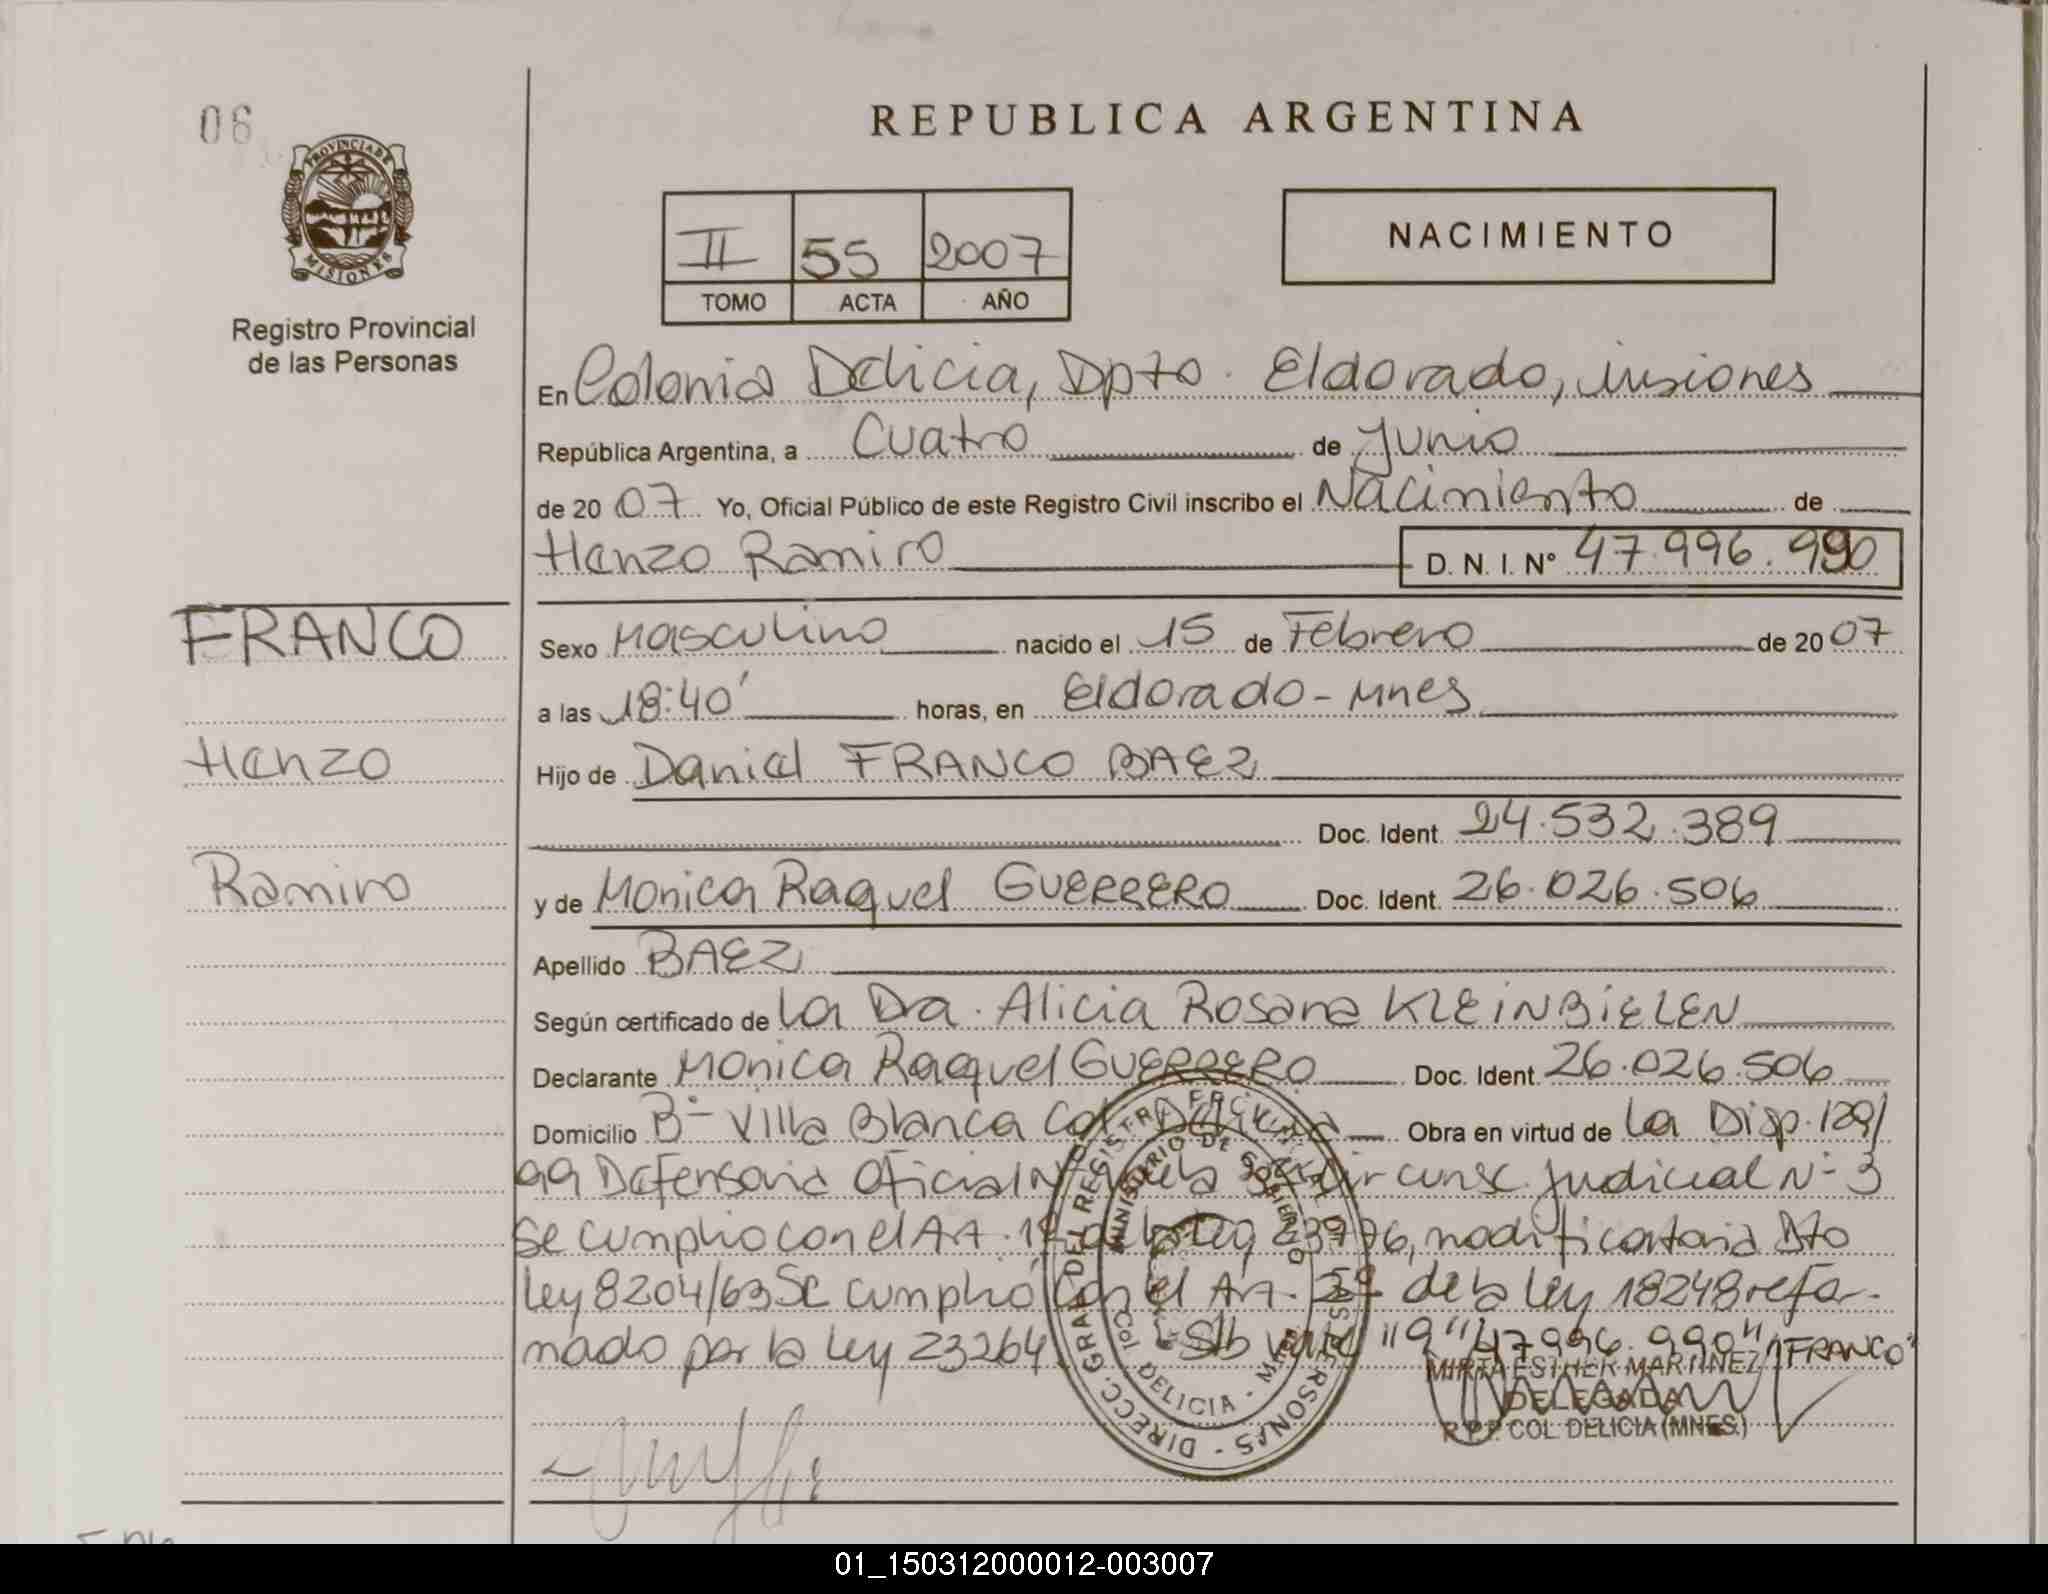 06
REPUBLICA ARGENTINA
PROVINCIA DE
MISIONES
Registro Provincial
de las Personas
II 55 2007
TOMO ACTA AÑO
NACIMIENTO
En Colonia Delicia, Dpto. Eldorado, Misiones
República Argentina, a Cuatro de Junio
de 2007 Yo, Oficial Público de este Registro Civil inscribo el Nacimiento de
Hanzo Ramiro D. N. I. Nº 47.996.990
FRANCO
Sexo Masculino nacido el 15 de Febrero de 2007
a las 18:40' horas, en Eldorado - Mnes
Hanzo
Hijo de Daniel FRANCO BAEZ
Doc. Ident. 24.532.389
Ramiro
y de Monica Raquel GUERRERO Doc. Ident. 26.026.506
Apellido BAEZ
Según certificado de La Dra. Alicia Rosana KLEINBIELEN
Declarante Monica Raquel GUERRERO Doc. Ident. 26.026.506
Domicilio Bº Villa Blanca Col. Delicia Obra en virtud de La Disp. 129/
99 Defensoria Oficial Nº de la Circunsc. Judicial Nº 3
Se cumplio con el Art. 1º de la Ley 23776, modificatoria Dto
Ley 8204/63 Se cumplió con el Art. de la Ley 18248 refor-
mado por la Ley 23264. S/b vale "9" "47996.990" "FRANCO"
DIRECC. GRAL DEL REGISTRO PROVINCIAL DE LAS PERSONAS -
MINISTERIO DE GOBIERNO
COL DELICIA - MNES
MIRTA ESTHER MARTINEZ
DELEGADA
R.P.P. COL. DELICIA (MNES.)
01_150312000012-003007